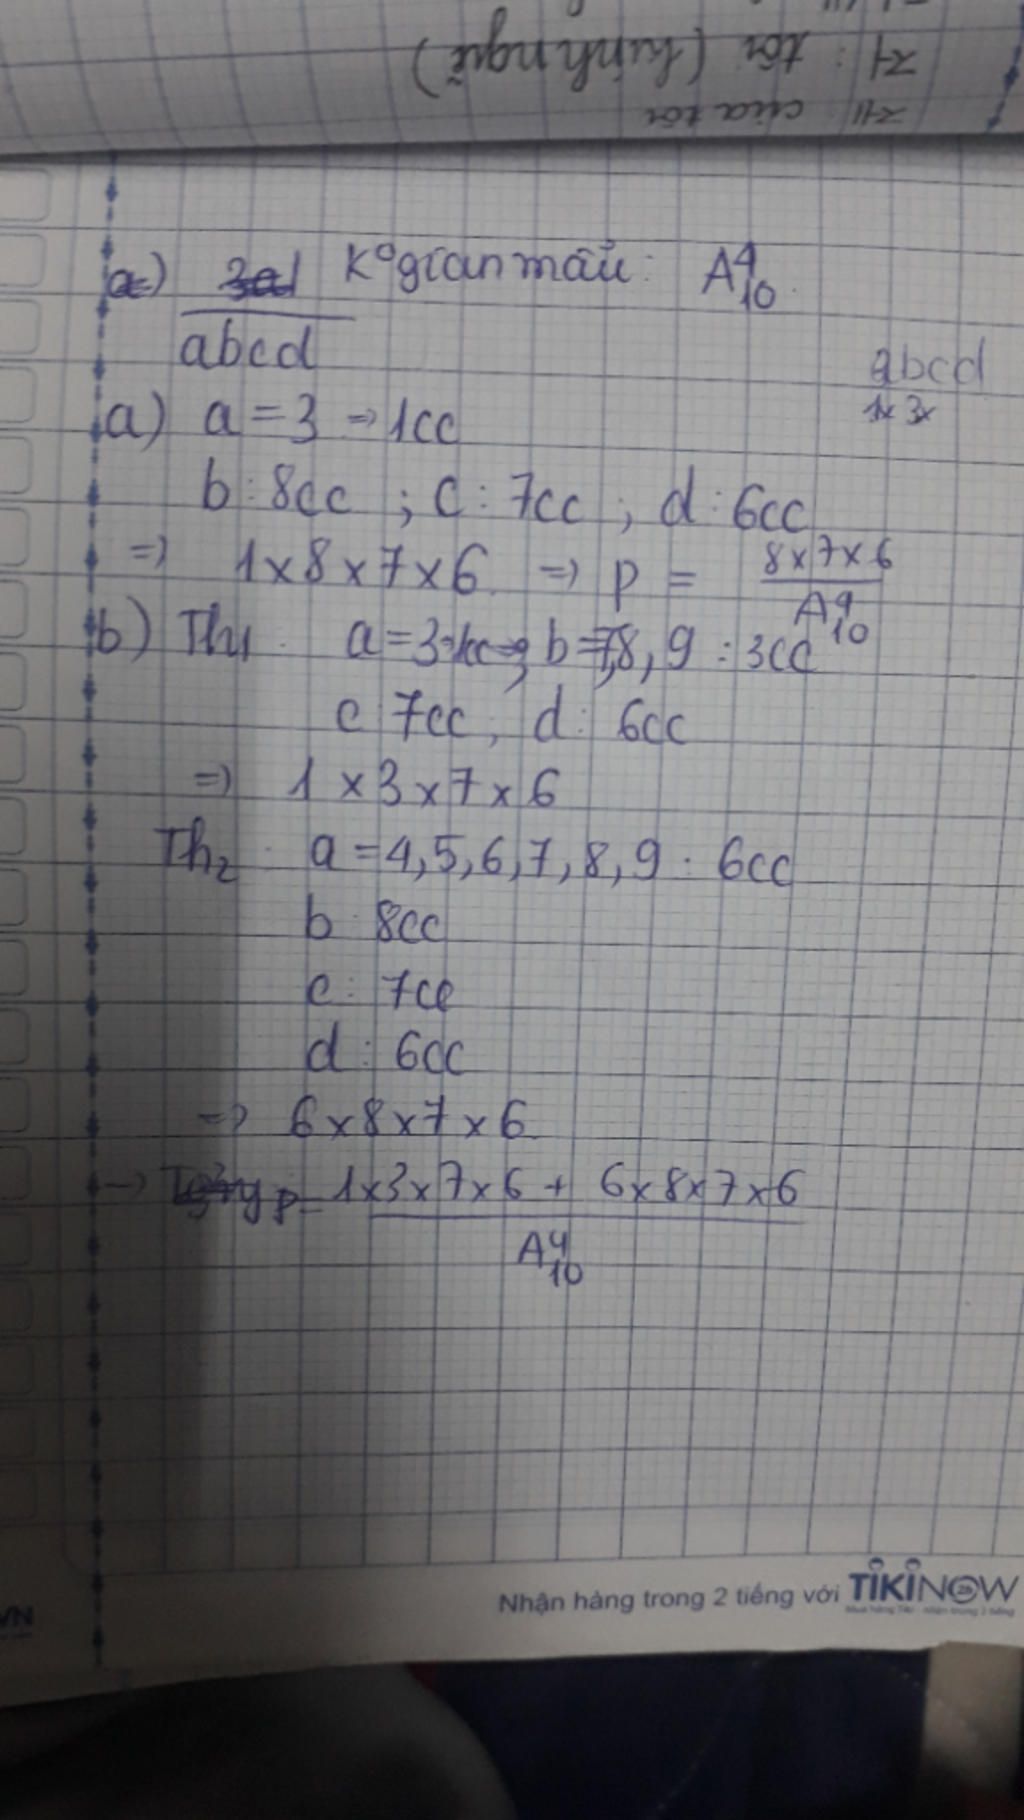 z1 : tôi (hình ngữ)
z11 của tôi
a) 3a1 k° gian mẫu: A⁴₁₀.
abcd
abcd
1x 3x
a) a = 3 → 1cc
b : 8cc ; c : 7cc ; d : 6cc
=> 1x8x7x6 => p = 8x7x6 / A⁴₁₀
b) Th1 : a = 3 b = 7,8,9 : 3cc
c 7cc, d : 6cc
=> 1 x 3 x 7 x 6
Th2 : a = 4,5,6,7,8,9 : 6cc
b 8cc
c : 7cc
d : 6cc
=> 6x8x7x6
-> p = 1x3x7x6 + 6x8x7x6 / A⁴₁₀
Nhận hàng trong 2 tiếng với TIKINOW
VN